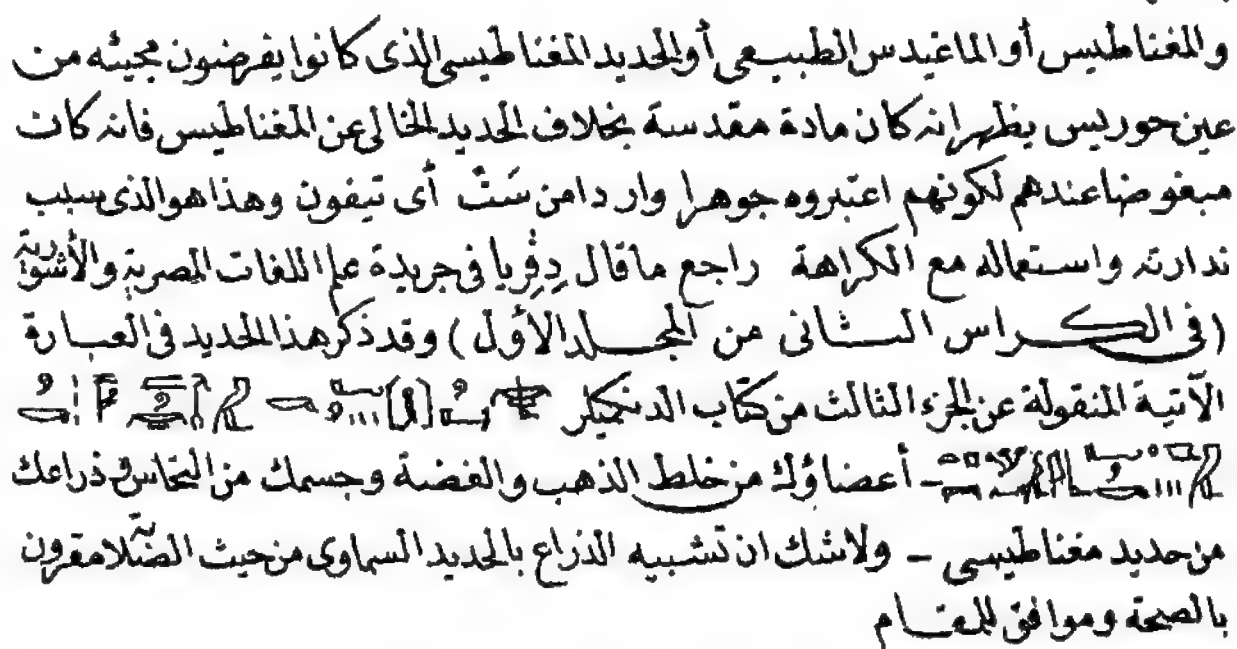 والمغناطيس أو الماغيدس الطبيعى أو الحديد المغناطيسى الذى كانوا يفرضون مجيئه من
عين حوريس يظهر انه كان مادة مقدسة بخلاف الحديد الخالى عن المغناطيس فانه كان
مبغوضا عندهم لكونهم اعتبروه جوهرا واردا من سَتْ أى تيفون وهذا هو الذى سبب
ندارته واستعماله مع الكراهة راجع ما قال دِڤِريا فى جريدة علم اللغات المصرية والأشورية
(فى الكراس الثانى من المجلد الأول) وقد ذكر هذا الحديد فى العبارة
الآتية المنقولة عن الجزء الثالث من كتاب الدنكميلر
- أعضاؤك من خلط الذهب والفضة وجسمك من النحاس وذراعك
من حديد مغناطيسى - ولاشك ان تشبيه الذراع بالحديد السماوى من حيث الصلابة مقرون
بالصحة وموافق للمقام